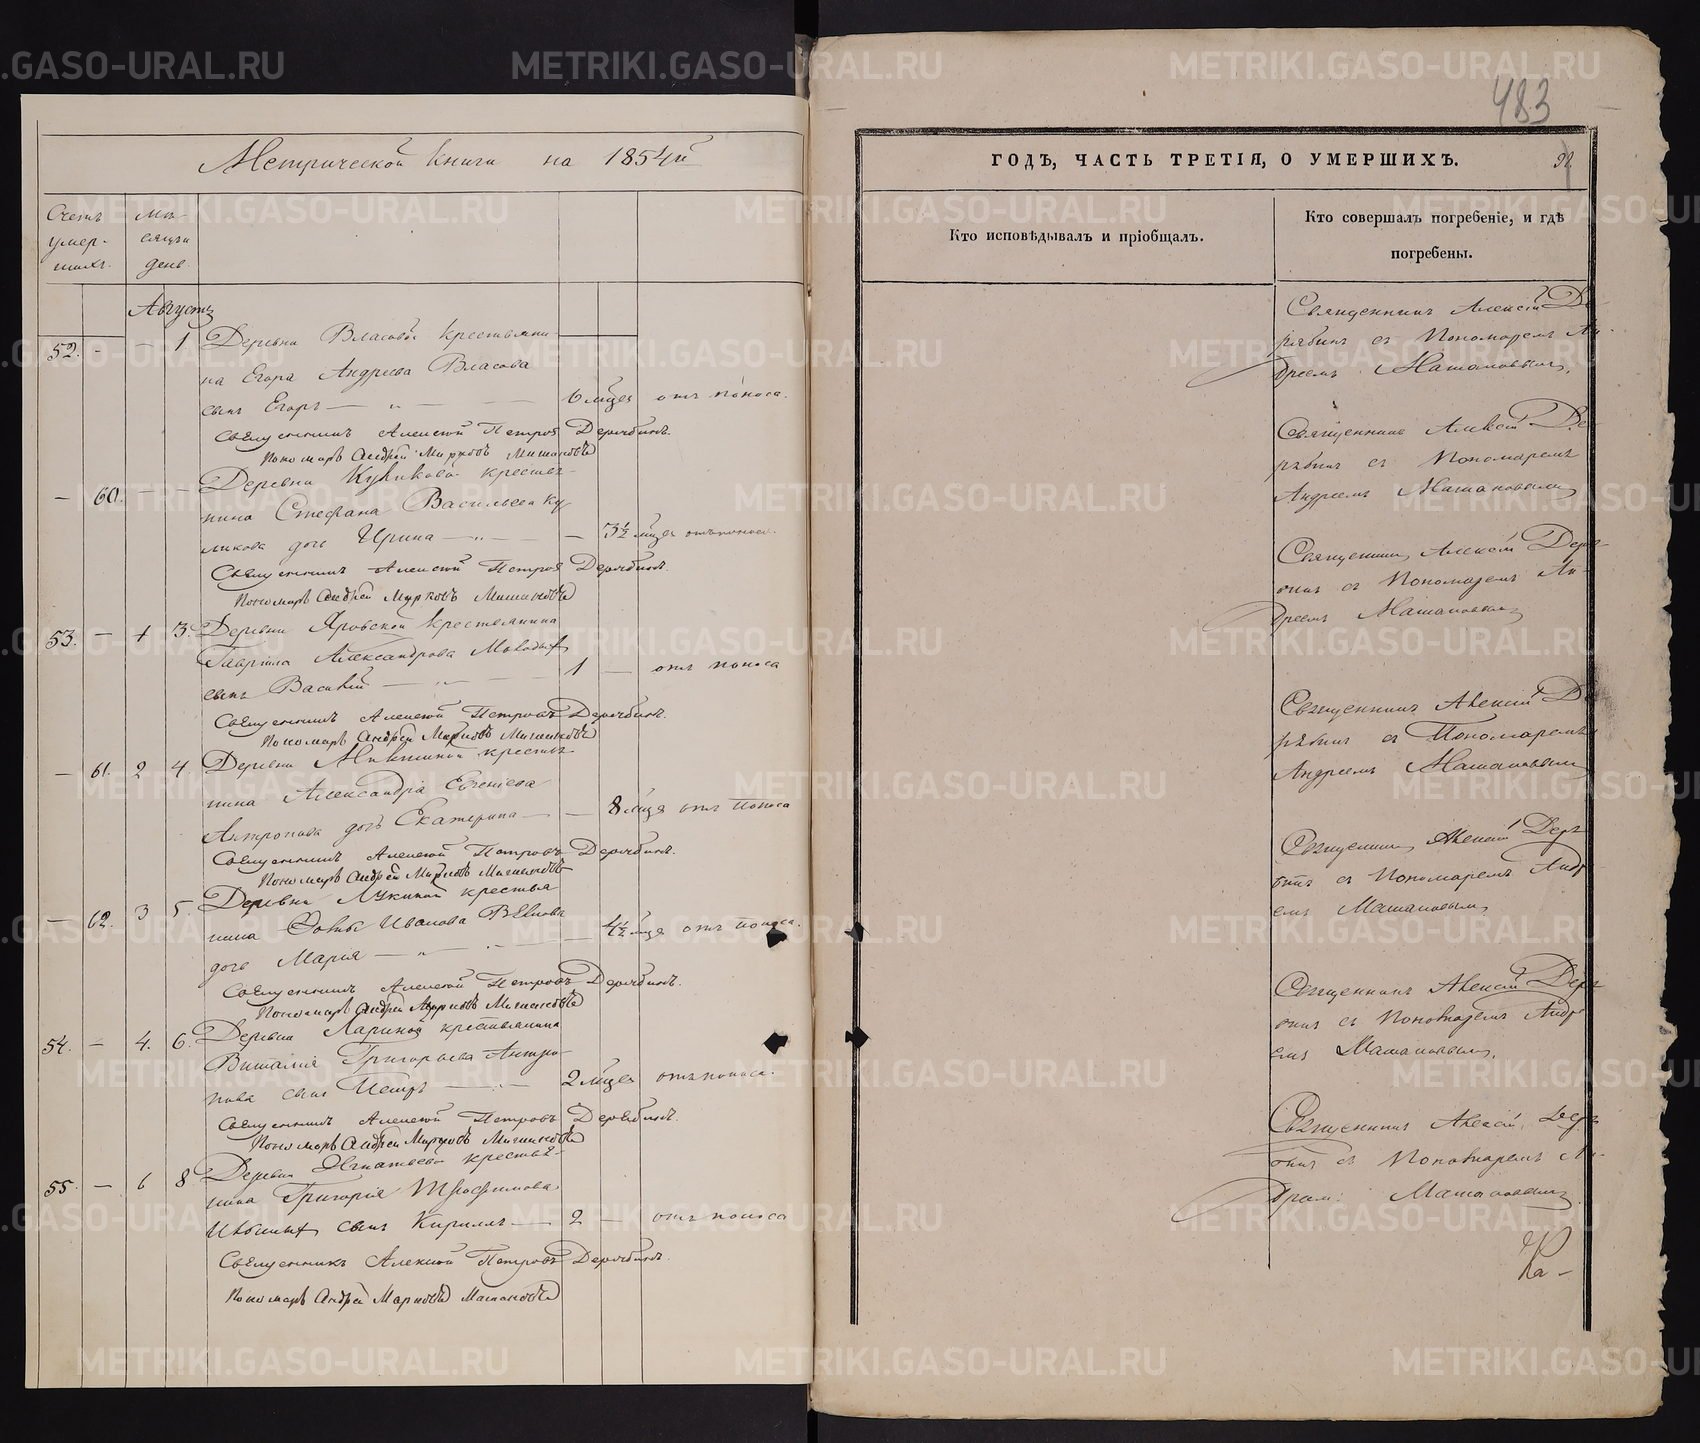 Метрической книги на 1854й
Счетъ умер- шихъ.
Мѣ- сяцъ и день.
Августъ
52. - - 1 Деревни Власовой крестьяни-
на Егора Андреева Власова
сынъ Егоръ — „ — 6 мѣцъ отъ поноса.
Священникъ Алексѣй Петровъ Дерябинъ.
Пономарь Андрей Марковъ Машановъ
— 60. — — Деревни Куликовой крестья-
нина Стефана Васильева Ку-
ликова дочь Ирина — „ — — 3½ мѣца отъ поноса.
Священникъ Алексѣй Петровъ Дерябинъ.
Пономарь Андрей Марковъ Машановъ
53. — 1 3. Деревни Яровской крестьянина
Гавріила Александрова Молодых
сынъ Василій — „ — 1 — отъ поноса
Священникъ Алексѣй Петровъ Дерябинъ.
Пономарь Андрей Марковъ Машановъ
— 61. 2 4. Деревни крестья-
нина Александра Евгеніева
Антропова дочь Екатерина — — 8 мѣца отъ поноса
Священникъ Алексѣй Петровъ Дерябинъ.
Пономарь Андрей Марковъ Машановъ
— 62. 3 5. Деревни Лукиной крестья
нина Иванова
дочь Марія — „ — 4½ мѣца отъ поноса.
Священникъ Алексѣй Петровъ Дерябинъ.
Пономарь Андрей Марковъ Машановъ
54. — 4. 6. Деревни Лариной крестьянина
Виталія Григорьева Антро-
пова сынъ Петръ — „ — 2 мѣцъ отъ поноса.
Священникъ Алексѣй Петровъ Дерябинъ.
Пономарь Андрей Марковъ Машановъ
55. — 6 8 Деревни Игнатьевой крестья-
нина Григорія Трофимова
сынъ Кириллъ — 2 — отъ поноса
Священникъ Алексѣй Петровъ Дерябинъ.
Пономарь Андрей Марковъ Машановъ
483
ГОДЪ, ЧАСТЬ ТРЕТІЯ, О УМЕРШИХЪ.
Кто исповѣдывалъ и пріобщалъ.
Кто совершалъ погребеніе, и гдѣ
погребены.
Священникъ Алексій Де-
рябинъ съ Пономаремъ Ан-
дреемъ Машановымъ,
Священникъ Алексій Де-
рябинъ съ Пономаремъ
Андреемъ Машановымъ
Священникъ Алексій Деря-
бинъ съ Пономаремъ Ан-
дреемъ Машановымъ
Священникъ Алексій Де
рябинъ съ Пономаремъ
Андреемъ Машановымъ
Священникъ Алексій Деря
бинъ съ Пономаремъ Андр-
емъ Машановымъ
Священникъ Алексій Деря
бинъ съ Пономаремъ Андре
емъ Машановымъ.
Священникъ Алексій Деря
бинъ съ Пономаремъ Ан-
дреемъ Машановымъ
METRIKI.GASO-URAL.RU